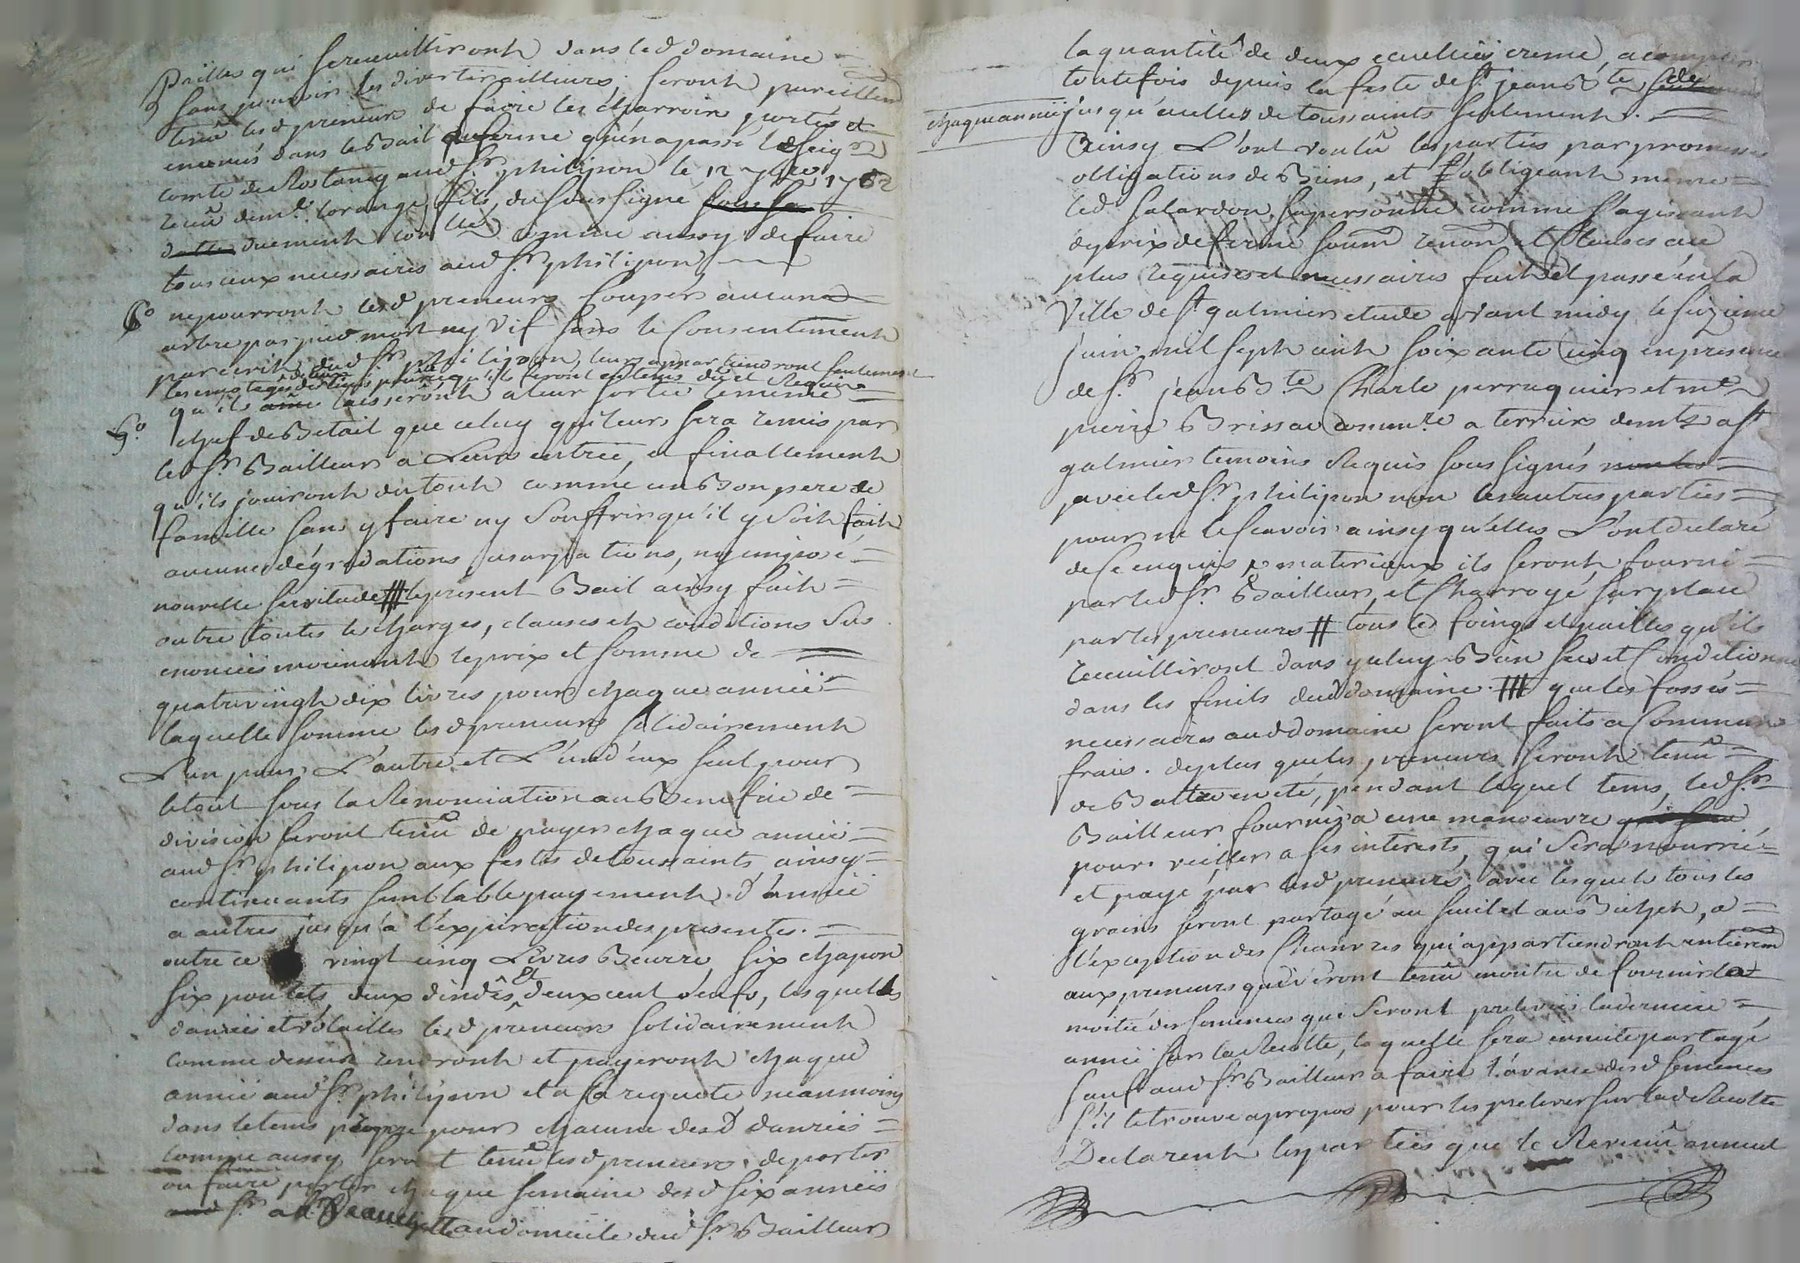 Pailles qui sereceuilliront dans led domaine
sans pouvoir les divertir ailleurs; seront pareillem
tenu lesd preneurs de faire les charrois portés et
enoncés dans le Bail a ferme qu'en a passé led Seigr
comte de Rostaing aud Sr philipon le 12 7bre 1762
receu de me Lorange, fils, du sous signé
duement con comme aussy de faire
tous ceux necessaires aud Sr philipon
6o ne pourront lesd preneurs Couper aucuns
arbre par pied mort ny vif sans le Consentement
par ecrit dud Sr philipon, leurs appartiendront seulement
qu'ils laisseront a leur sortie le meme
5o chef de Betail que celuy qui leur sera remis par
led Sr Bailleur a Leurs entrée, et finallement
qu'ils jouiront du tout comme un Bon pere de
famille sans y faire ny Souffrir qu'il y Soit fait
aucunes dégradations usurpations, ny imposé
nouvelle servitude # le present Bail ainsy fait
outre toutes les charges, clauses et conditions Sus
enoncées moiennant le prix et somme de
quatrevingt dix livres pour chaque année
laquelle somme lesd preneurs solidairement
L'un pour L'autre et L'un d'eux seul pour
le tout sous la Renonciation au Benefice de
division seront tenu de payer chaque année
aud Sr philipon aux festes de toussaints, ainsy
continuants semblable payement d'année
a autres jusqu'à l'expiration des presentes.
outre ce vingt cinq Livres Beurre, six chapon
six poulets, deux dindes, et deux cent oeufs, lesquelles
danrées et volailles lesd preneurs solidairement
comme dessus rendront et payeront chaque
année aud Sr philipon et a sa requete neanmoins
dans le tems propre pour chacune desd danrées
comme aussy seront tenu lesd preneurs de porter
ou faire porter chaque semaine desd six années
aud Sr a au domicile dud Sr Bailleur
la quantité de deux ecuelles creme, a compter
toutefois depuis la feste de St jean Bte
chaque année jusqu'a celles de toussaints seulement.
Ainsy L'ont voulu les parties par promesse
obligations de Biens, et s'obligeant meme
led Salardon, sa personne comme s'agissant
de prix de ferme soum renon et Clauses au
plus requises et necessaires fait et passé en la
Ville de St galmier etude avant midy le sizieme
juin mil sept cent soixante cinq en presence
de Sr jean Bte Charle perruquier et me
pierre Brissac commre a terrier demts a St
galmier temoins Requis sous signés
avec led Sr philipon non les autres parties
pour ne le scavoir ainsy qu'elles L'ont declaré
de ce enquis, materieaux ils seront fourni
par led Sr Bailleur, et Charroyé sur place
par les preneurs # tous led foings et pailles qu'ils
receuilliront dans y celuy Bien sec et Conditionné
dans les fenils dud domaine. # que les fossés
necessaires aud domaine seront faits a Commun
frais. de plus que les preneurs seront tenu
de Battre en eté, pendant lequel tems, led Sr
Bailleur fournira une manoeuvre
pour veiller a ses interests, qui Sera nourrie
et payé par lesd preneurs avec lesquels tous les
grains seront partagé au sueil et au Bichet, a
l'exception des Chanvres qui appartiendront entierem
aux preneurs qui seront tenu moitié de fournir la
moitié des semences qui Seront prelevées la derniere
année sur la Recolte, laquelle sera ensuite partagé
sauf aud Sr Bailleur a faire l'avance desd semences
S'il le trouve apropos pour les prelever sur lad Recolte
Declarent les parties que le Revenu annuel